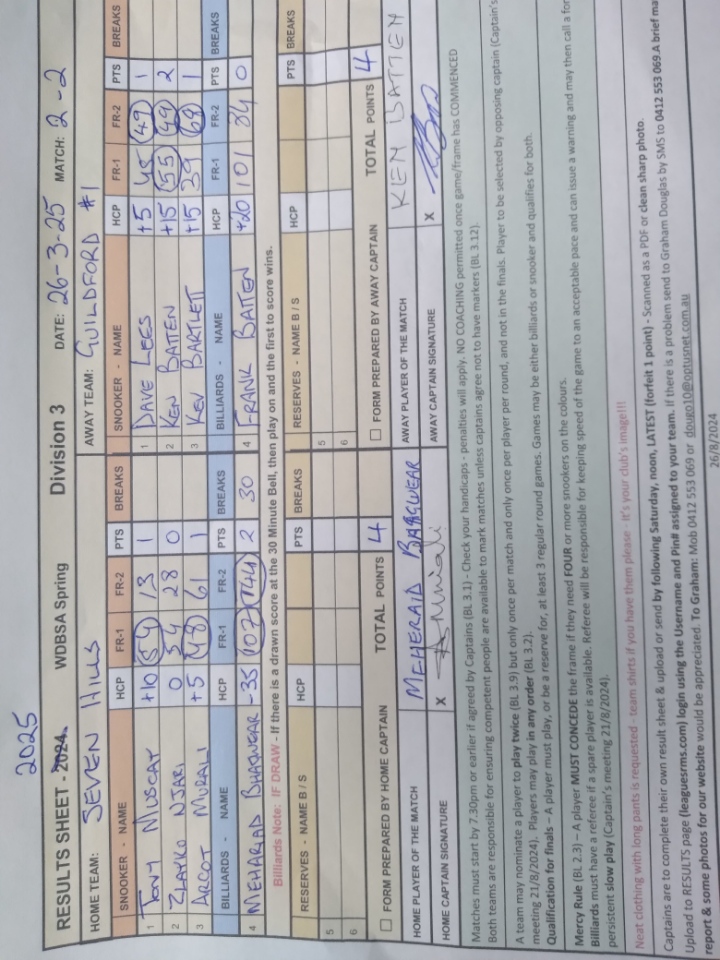 2025
RESULTS SHEET - 2024. WDBSA Spring Division 3 DATE: 26-3-25 MATCH: 2-2
HOME TEAM: SEVEN HILLS AWAY TEAM: GUILDFORD #1
SNOOKER - NAME HCP FR-1 FR-2 PTS BREAKS SNOOKER - NAME HCP FR-1 FR-2 PTS BREAKS
1 TONY MUSCAT +10 54 13 1 1 DAVE LEES +5 45 49 1
2 ZLATKO NJARI 0 54 28 0 2 KEN BATTEN +15 55 49 2
3 ARCOT MURALI +5 48 61 1 3 KEV BARTLET +15 39 68 1
BILLIARDS - NAME HCP FR-1 FR-2 PTS BREAKS BILLIARDS - NAME HCP FR-1 FR-2 PTS BREAKS
4 MEHARAD BHAGWEAR -35 107 144 2 30 4 FRANK BATTEN +20 101 34 0
Billiards Note: IF DRAW - If there is a drawn score at the 30 Minute Bell, then play on and the first to score wins.
RESERVES - NAME B / S HCP PTS BREAKS RESERVES - NAME B / S HCP PTS BREAKS
5 5
6 6
TOTAL POINTS 4 TOTAL POINTS 4
FORM PREPARED BY HOME CAPTAIN FORM PREPARED BY AWAY CAPTAIN
HOME PLAYER OF THE MATCH MEHERAID BARGWEAR AWAY PLAYER OF THE MATCH KEN BATTEN
HOME CAPTAIN SIGNATURE X AWAY CAPTAIN SIGNATURE X
Matches must start by 7.30pm or earlier if agreed by Captains (BL 3.1) - Check your handicaps - penalties will apply. NO COACHING permitted once game/frame has COMMENCED
Both teams are responsible for ensuring competent people are available to mark matches unless captains agree not to have markers (BL 3.12).
A team may nominate a player to play twice (BL 3.9) but only once per match and only once per player per round, and not in the finals. Player to be selected by opposing captain (Captain's
meeting 21/8/2024). Players may play in any order (BL 3.2).
Qualification for finals – A player must play, or be a reserve for, at least 3 regular round games. Games may be either billiards or snooker and qualifies for both.
Mercy Rule (BL 2.3) – A player MUST CONCEDE the frame if they need FOUR or more snookers on the colours.
Billiards must have a referee if a spare player is available. Referee will be responsible for keeping speed of the game to an acceptable pace and can issue a warning and may then call a for
persistent slow play (Captain's meeting 21/8/2024).
Neat clothing with long pants is requested - team shirts if you have them please - it's your club's image!!!
Captains are to complete their own result sheet & upload or send by following Saturday, noon, LATEST (forfeit 1 point) - Scanned as a PDF or clean sharp photo.
Upload to RESULTS page (leaguesrms.com) login using the Username and Pin# assigned to your team. If there is a problem send to Graham Douglas by SMS to 0412 553 069. A brief ma
report & some photos for our website would be appreciated. To Graham: Mob 0412 553 069 or dougo10@optusnet.com.au
26/8/2024